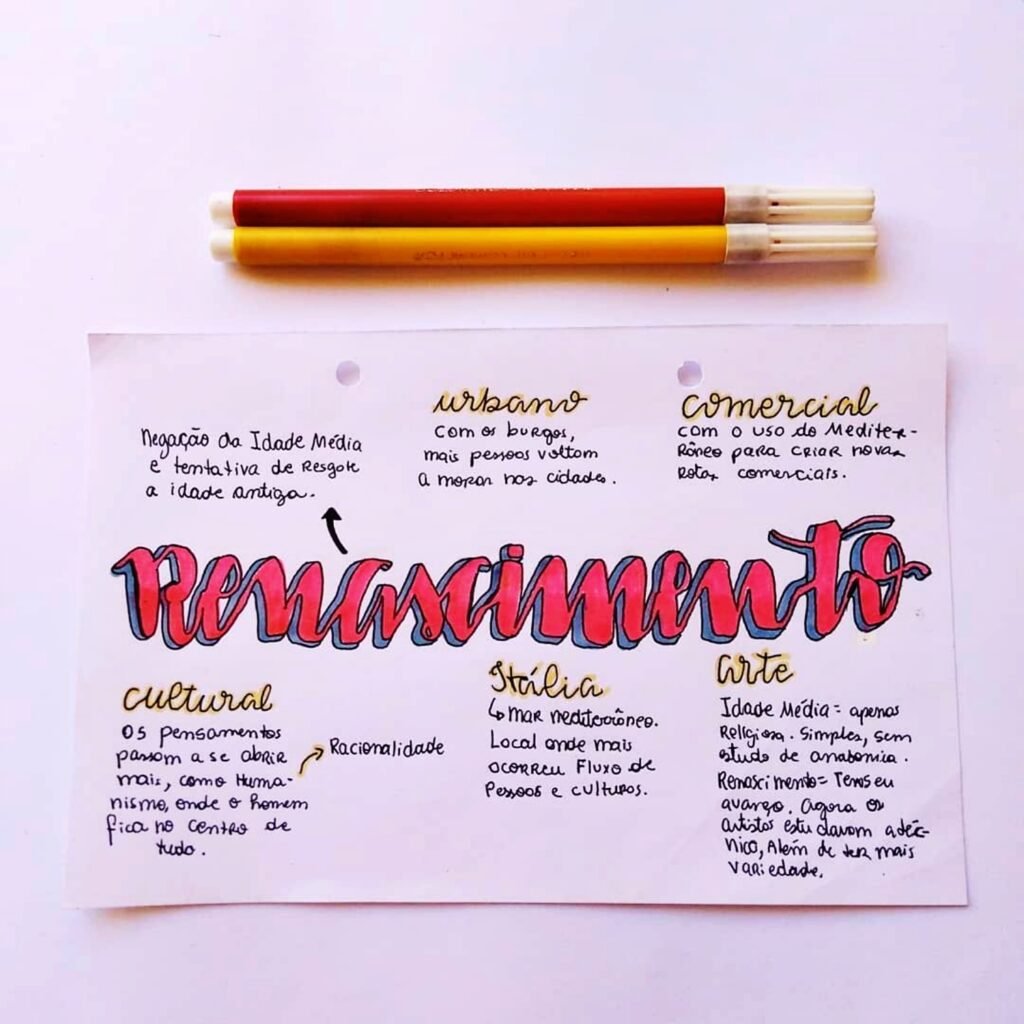 Negação da Idade Média
e tentativa de Resgate
a idade antiga.
urbano
com os burgos,
mais pessoas voltam
a morar nas cidades.
comercial
com o uso do Mediter-
Râneo para criar novas
Rotas comerciais.
Renascimento
cultural
os pensamentos
passam a se abrir
mais, como Huma-
nismo, onde o homem
fica no centro de
tudo.
Racionalidade
Itália
↳ mar mediterrâneo.
Local onde mais
ocorreu Fluxo de
Pessoas e culturas.
arte
Idade Média = apenas
Religiosa. Simples, sem
estudo de anatomia.
Renascimento = Teve seu
avanço. Agora os
artistas estudavam a téc-
nica, Além de ter mais
variedade.